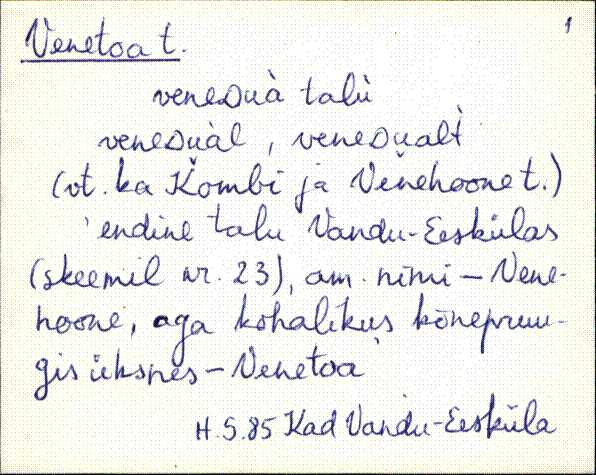 1
Venetoa t.
veneᴅuà talù
veneᴅuàl, veneᴅualt̀
(vt. ka Kombi ja Venehoone t.)
endine talu Vandu-Eeskülas
(skeemil nr. 23), am. nimi – Vene-
hoone, aga kohalikus kõnepruu-
gis üksnes – Venetoa
H.S.85 Kad Vandu-Eesküla